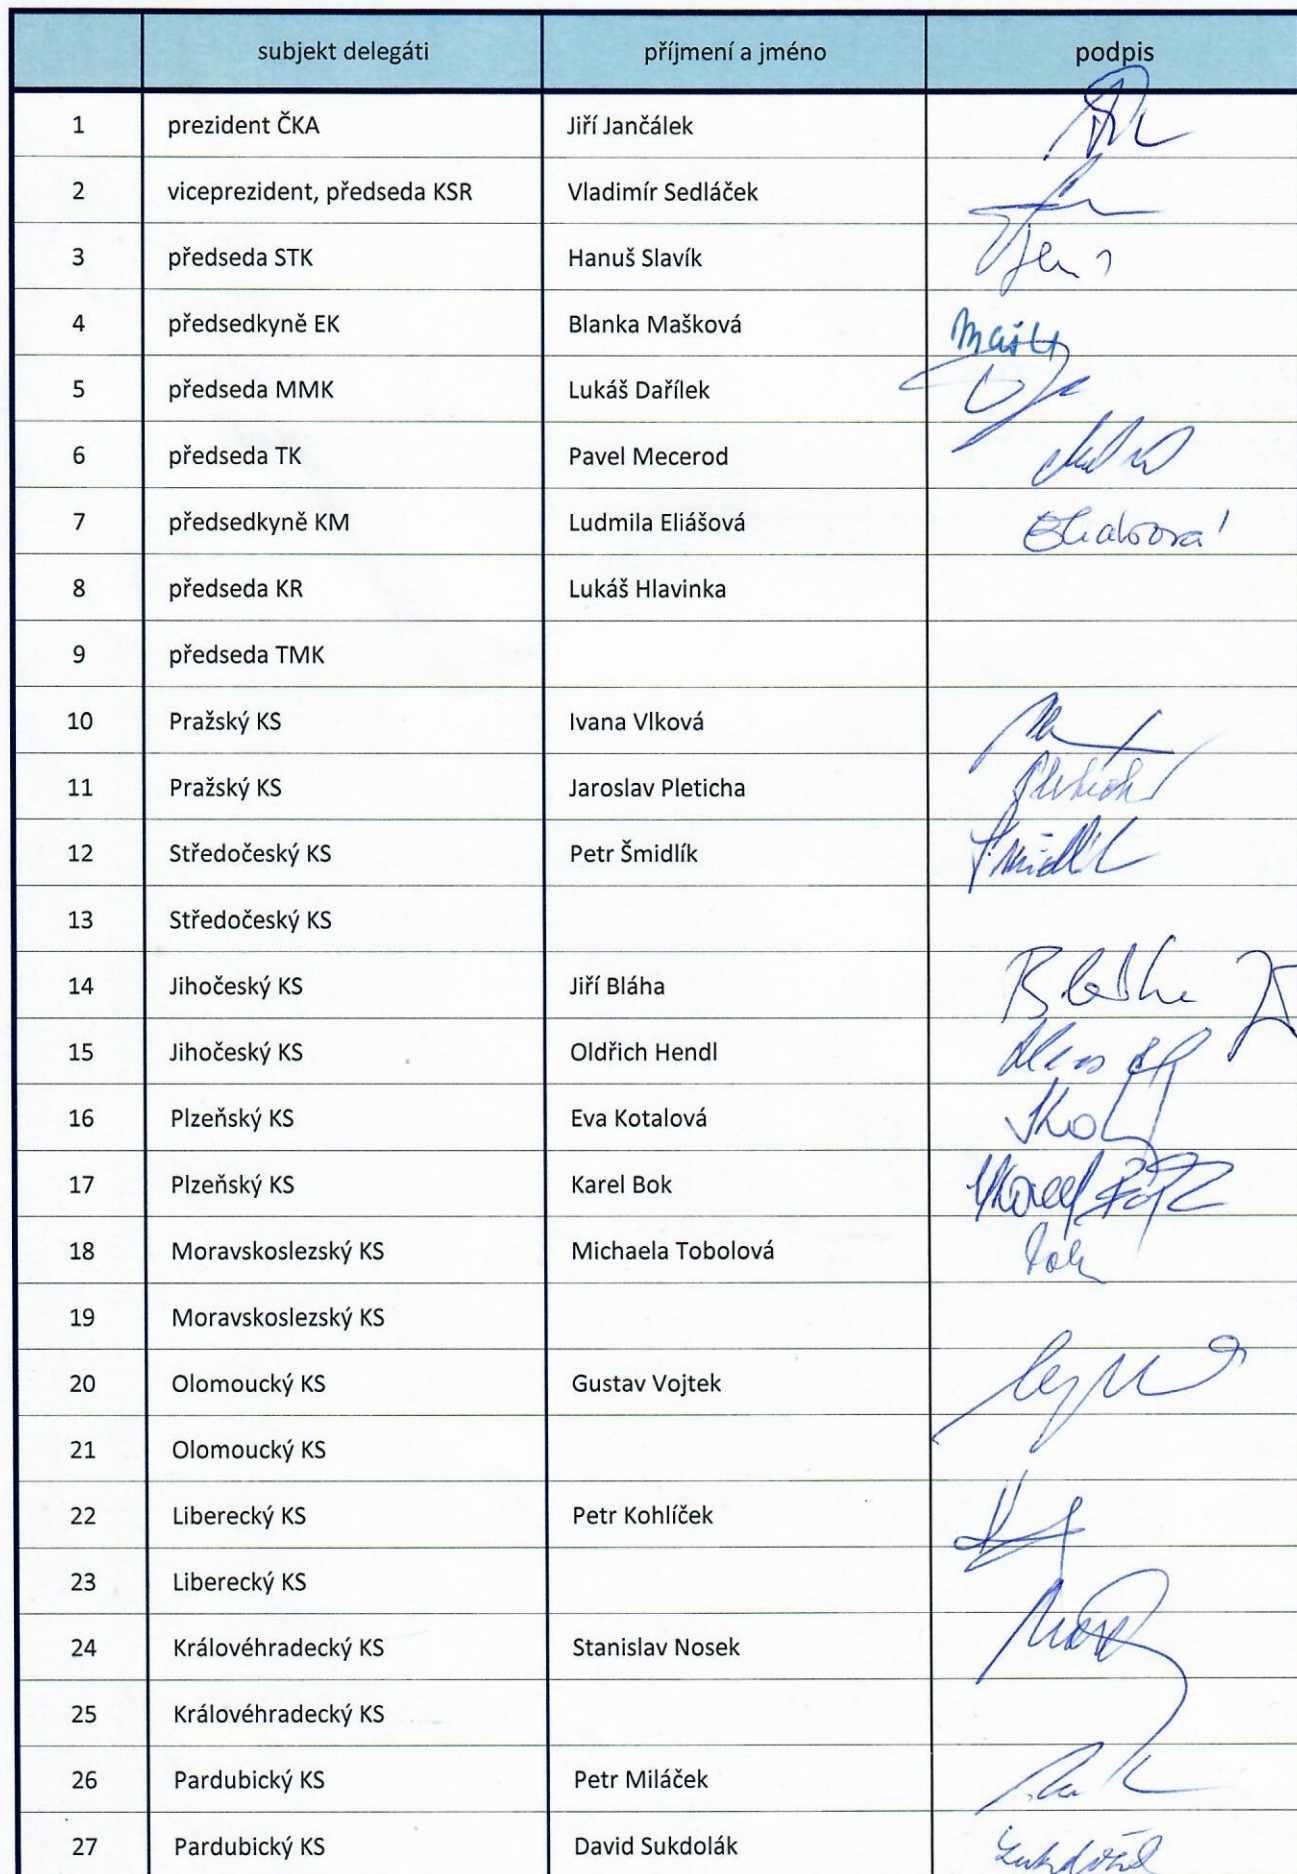 subjekt delegáti příjmení a jméno podpis
1 prezident ČKA Jiří Jančálek
2 viceprezident, předseda KSR Vladimír Sedláček
3 předseda STK Hanuš Slavík
4 předsedkyně EK Blanka Mašková
5 předseda MMK Lukáš Dařílek
6 předseda TK Pavel Mecerod
7 předsedkyně KM Ludmila Eliášová
8 předseda KR Lukáš Hlavinka
9 předseda TMK
10 Pražský KS Ivana Vlková
11 Pražský KS Jaroslav Pleticha
12 Středočeský KS Petr Šmidlík
13 Středočeský KS
14 Jihočeský KS Jiří Bláha
15 Jihočeský KS Oldřich Hendl
16 Plzeňský KS Eva Kotalová
17 Plzeňský KS Karel Bok
18 Moravskoslezský KS Michaela Tobolová
19 Moravskoslezský KS
20 Olomoucký KS Gustav Vojtek
21 Olomoucký KS
22 Liberecký KS Petr Kohlíček
23 Liberecký KS
24 Královéhradecký KS Stanislav Nosek
25 Královéhradecký KS
26 Pardubický KS Petr Miláček
27 Pardubický KS David Sukdolák